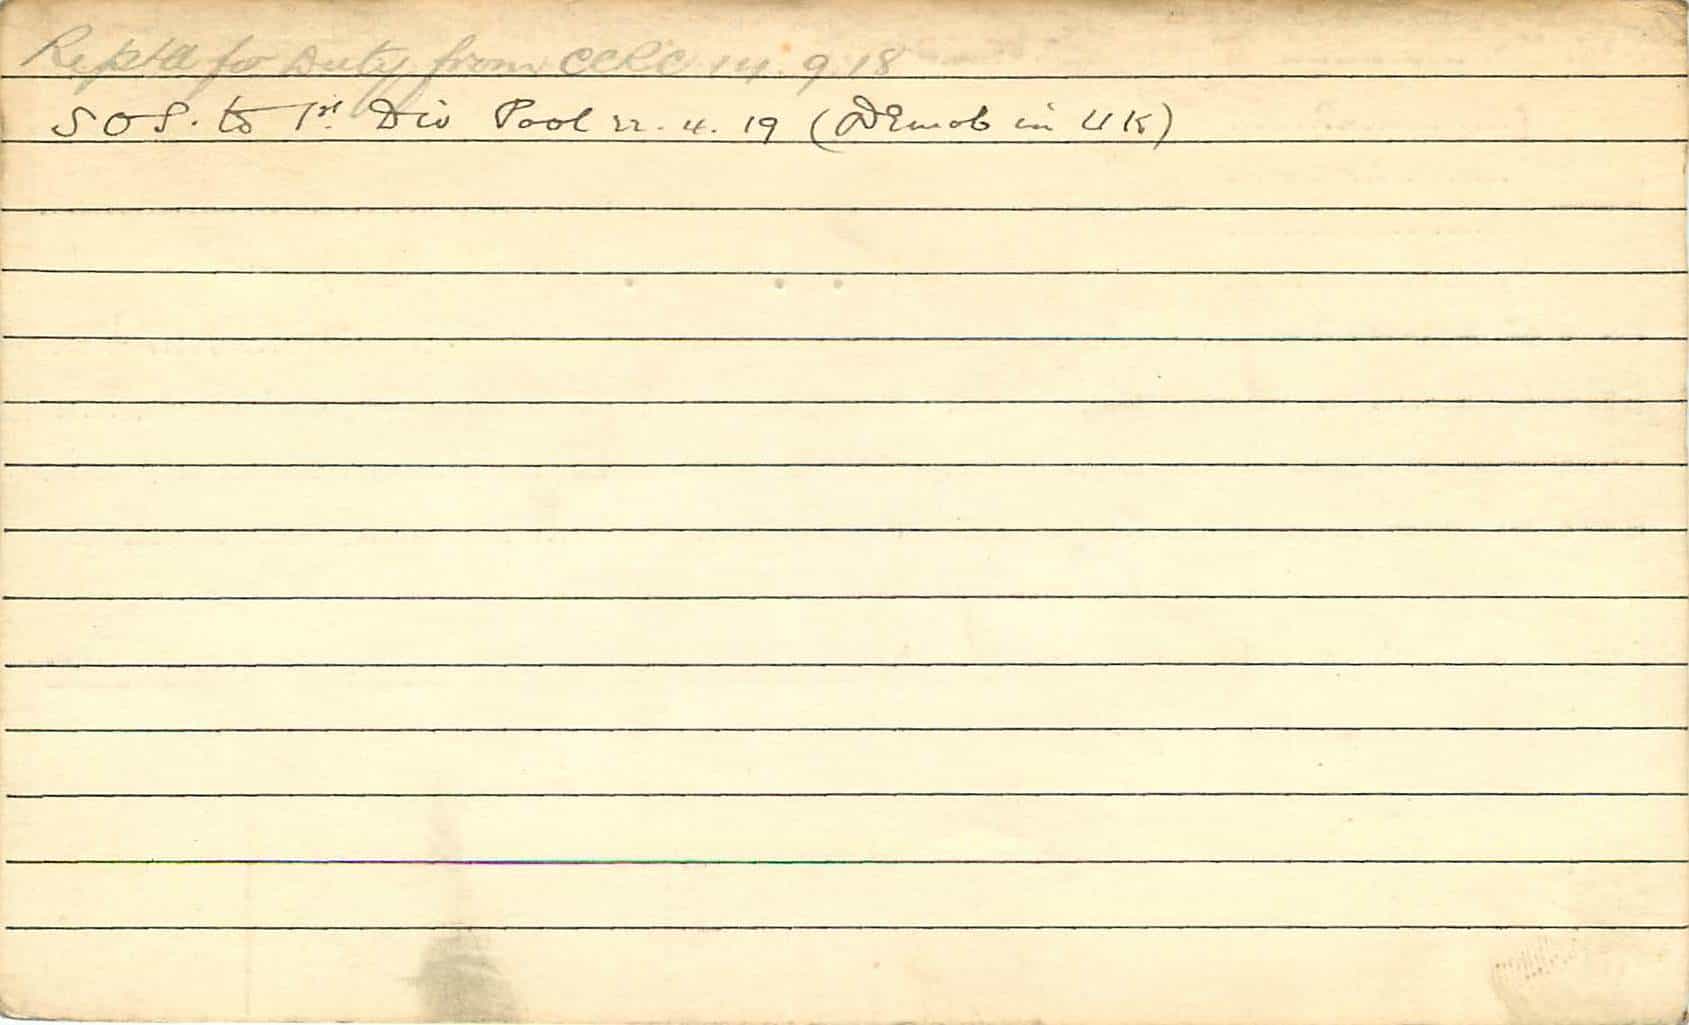 Rept'd for Duty from CCRC 14.9.18
S O S. to 1st Div Pool 22.4.19 (DEmob in UK)